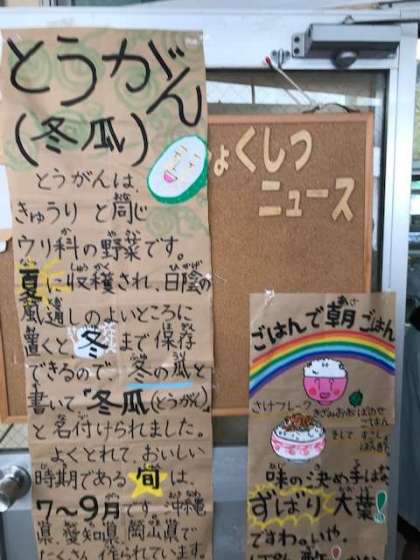 とうがん
(冬瓜)
とうがんは、
きゅうりと同じ
ウリ科の野菜です。
夏に収穫され、日陰の
風通しのよいところに
置くと、冬まで保存
できるので、冬の瓜と
書いて「冬瓜(とうがん)」
と名付けられました。
よくとれて、おいしい
時期である旬は、
7〜9月です。沖縄
県、愛知県、岡山県で
たくさん作られています。
ょくしつ
ニュース
ごはんで朝ごはん
さけフレーク
味の決め手はな
ずばり大葉!
ですわ。いや、